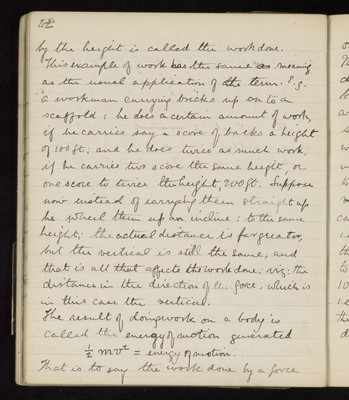 52
by the height is called the work done.
This example of work has the same meaning
as the usual application of the term. E.g.
a workman carrying bricks up on to a
scaffold; he does a certain amount of work,
if he carries say a score of bricks a height
of 100 ft; and he does twice as much work,
if he carries two score the same height, or
one score to twice the height, 200 ft. Suppose
now instead of carrying them straight up
he wheel them up an incline; to the same
height; the actual distance is far greater,
but the vertical is still the same, and
that is all that affects the work done; viz: the
distance in the direction of the force, which is
in this case the vertical.
The result of doing work on a body is
called the energy of motion generated
½ mv² = energy of motion.
That is to say the work done by a force